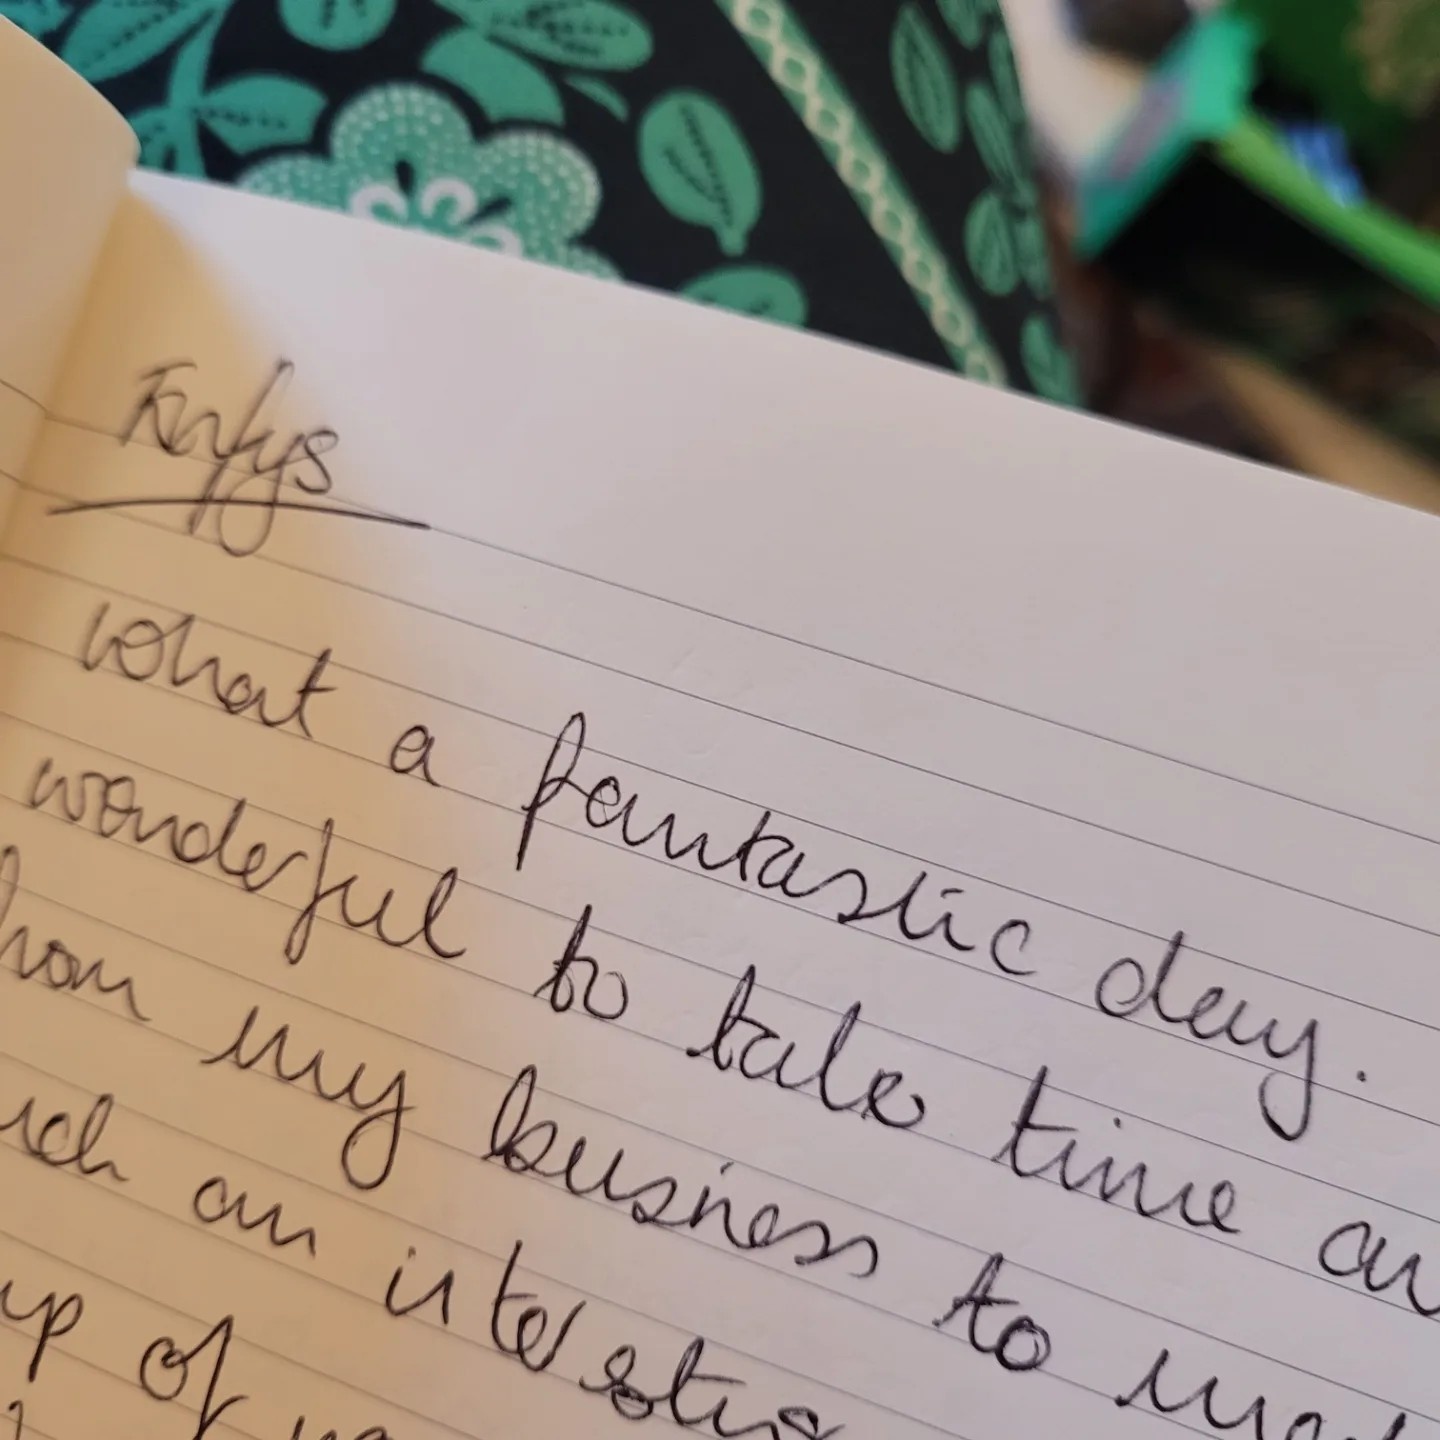 Enfys
What a fantastic day.
wonderful to take time
from my business to
an
up of